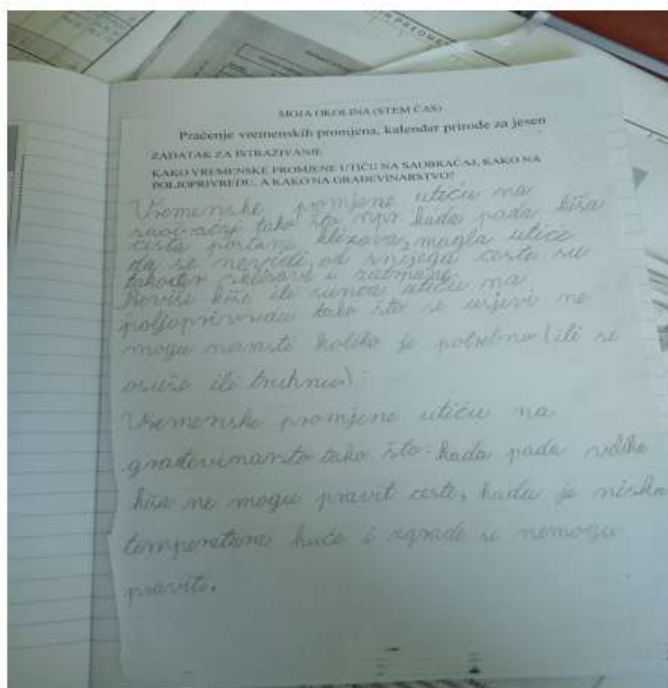 MOJA OKOLINA (STEM ČAS)
Praćenje vremenskih promjena, kalendar prirode za jesen
ZADATAK ZA ISTRAŽIVANJE
KAKO VREMENSKE PROMJENE UTIČU NA SAOBRAĆAJ, KAKO NA
POLJOPRIVREDU, A KAKO NA GRAĐEVINARSTVO?
Vremenske promjene utiču na
saobraćaj tako što npr. kada pada kiša
cesta postane klizava, magla utiče
da se nevidi, od snijega ceste su
također klizave i
Previše kiše ili sunca utiču na
poljoprivredu tako što se usjevi ne
mogu narasti koliko je potrebno (ili se
osuše ili truhnu).
Vremenske promjene utiču na
građevinarsto tako što: kada pada velika
kiša ne mogu pravit ceste, kada je niska
temperatura kuće i zgrade se nemogu
praviti.